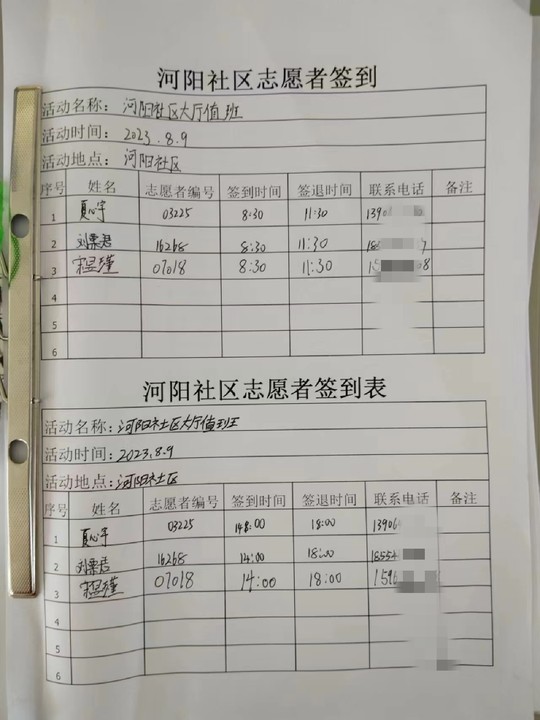 河阳社区志愿者签到
活动名称：河阳社区大厅值班
活动时间：2023.8.9
活动地点：河阳社区
序号 姓名 志愿者编号 签到时间 签退时间 联系电话 备注
1 03225 8:30 11:30 1390
2 刘栗君 16268 8:30 11:30 18 7
3 宋昱瑾 07018 8:30 11:30 15 08
4
5
6
河阳社区志愿者签到表
活动名称：河阳社区大厅值班
活动时间：2023.8.9
活动地点：河阳社区
序号 姓名 志愿者编号 签到时间 签退时间 联系电话 备注
1 03225 14:00 18:00 13906
2 刘栗君 16268 14:00 18:00 18554
3 宋昱瑾 07018 14:00 18:00 1596
4
5
6